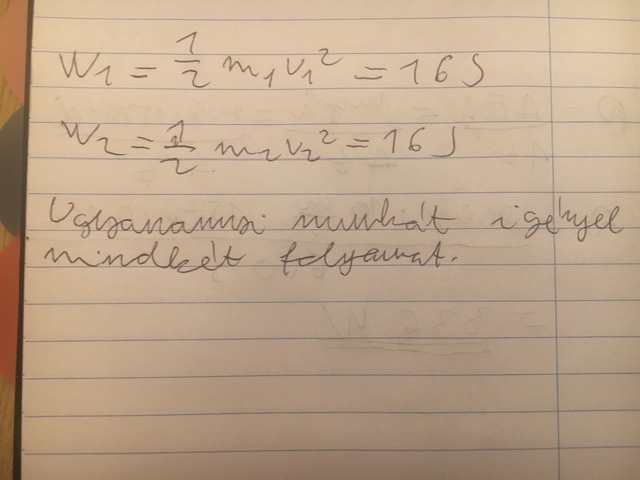 W₁ = 1/2 m₁v₁² = 16 J
W₂ = 1/2 m₂v₂² = 16 J
Ugyanannyi munkát igényel
mindkét folyamat.